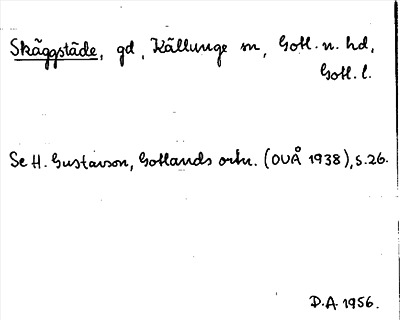 Skäggstäde, gd, Källunge sn, Gotl. n. hd,
Gotl. l.
Se H. Gustavson, Gotlands ortn. (OUÅ 1938), s. 26.
D.A. 1956.